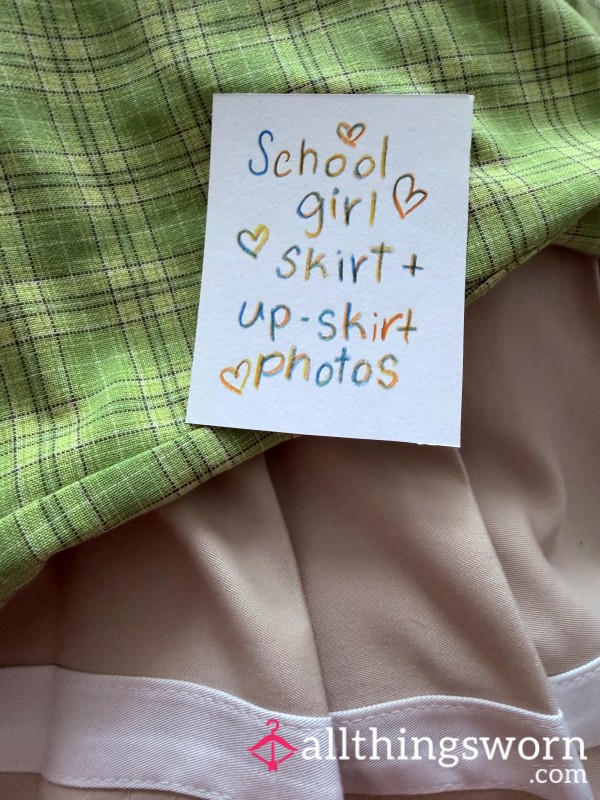 School
girl
skirt +
up-skirt
photos
allthingsworn
.com